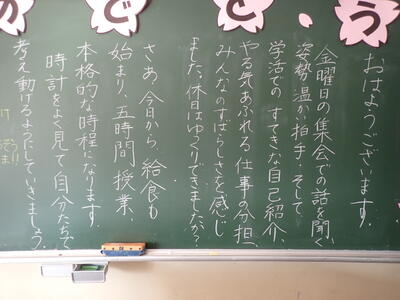 おはようございます。
金曜日の集会での話を聞く
姿勢、温かい拍手、そして、
学活での すてきな自己紹介、
やる気あふれる 仕事の分担、
みんなのすばらしさを感じ
ました。休日はゆっくりできましたか?
さあ、今日から、給食も
始まり、五時間授業、
本格的な時程になります。
時計をよく見て自分たちで
考え動けるようにしていきましょう。